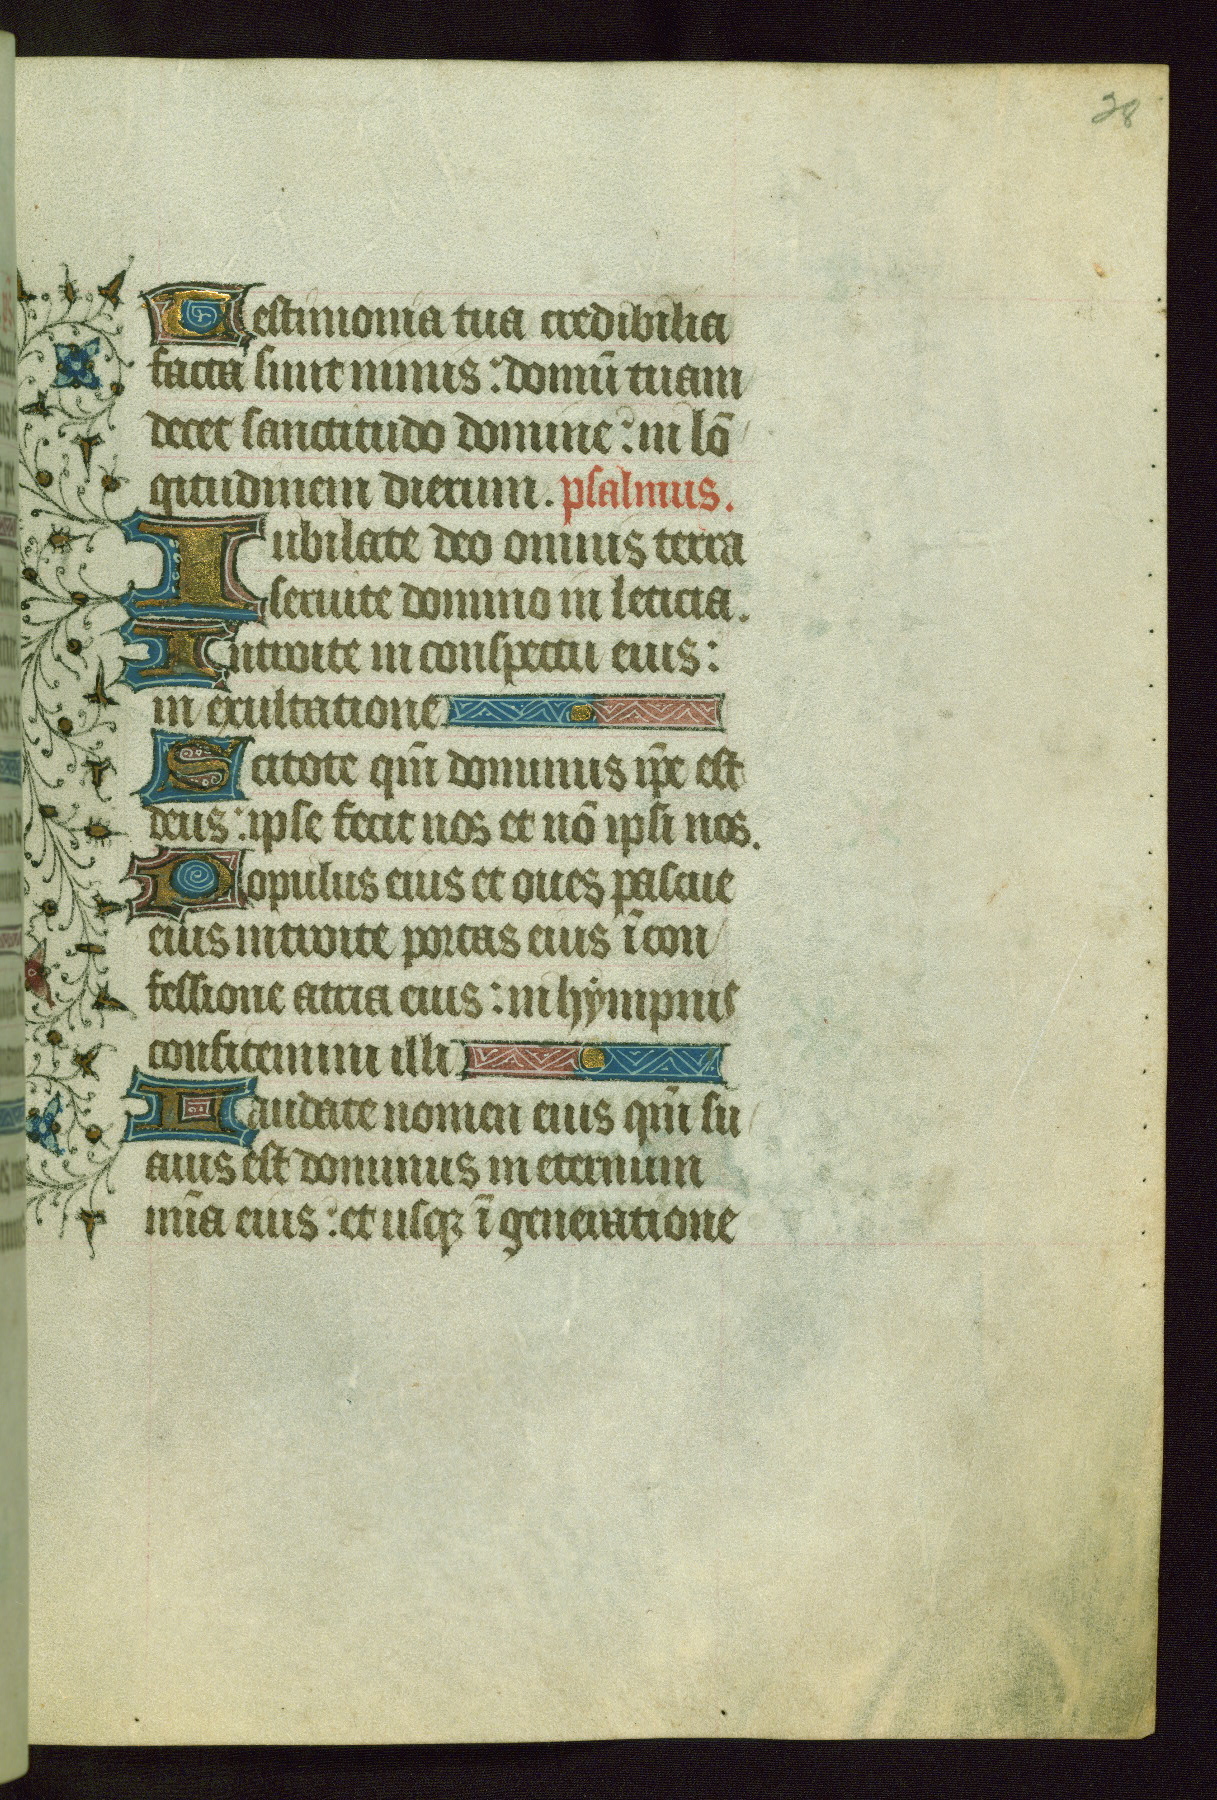 28
Testimonia tua credibilia
facta sunt nimis : domū tuam
decet sanctitudo domine : in lō
gitudinem dierum. psalmus.
Iubilate deo omnis terra
seruite domino in leticia.
Introite in conspectu eius :
in exultatione
Scitote qm̄ dominus ip̄e est
deus : ipse fecit nos et nō ipsi nos.
Populus eius et oues pascue
eius introite portas eius ī con
fessione atria eius : in hẏmpnis
confitemini illi
Laudate nomen eius qm̄ su
auis est dominus in eternum
mīa eius : et usqꝫ ī generatione